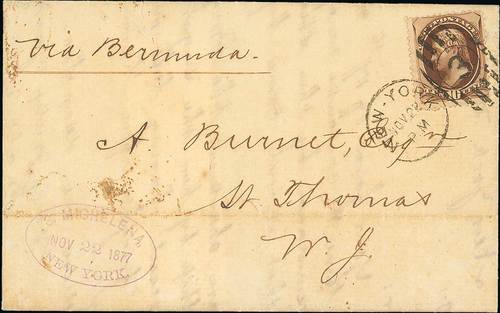 Via Bermuda.
NEW-YORK
NOV 22
PM
A. Burnet, Esq
St Thomas
W. I.
MICHELENA
NOV 22 1877
NEW YORK.